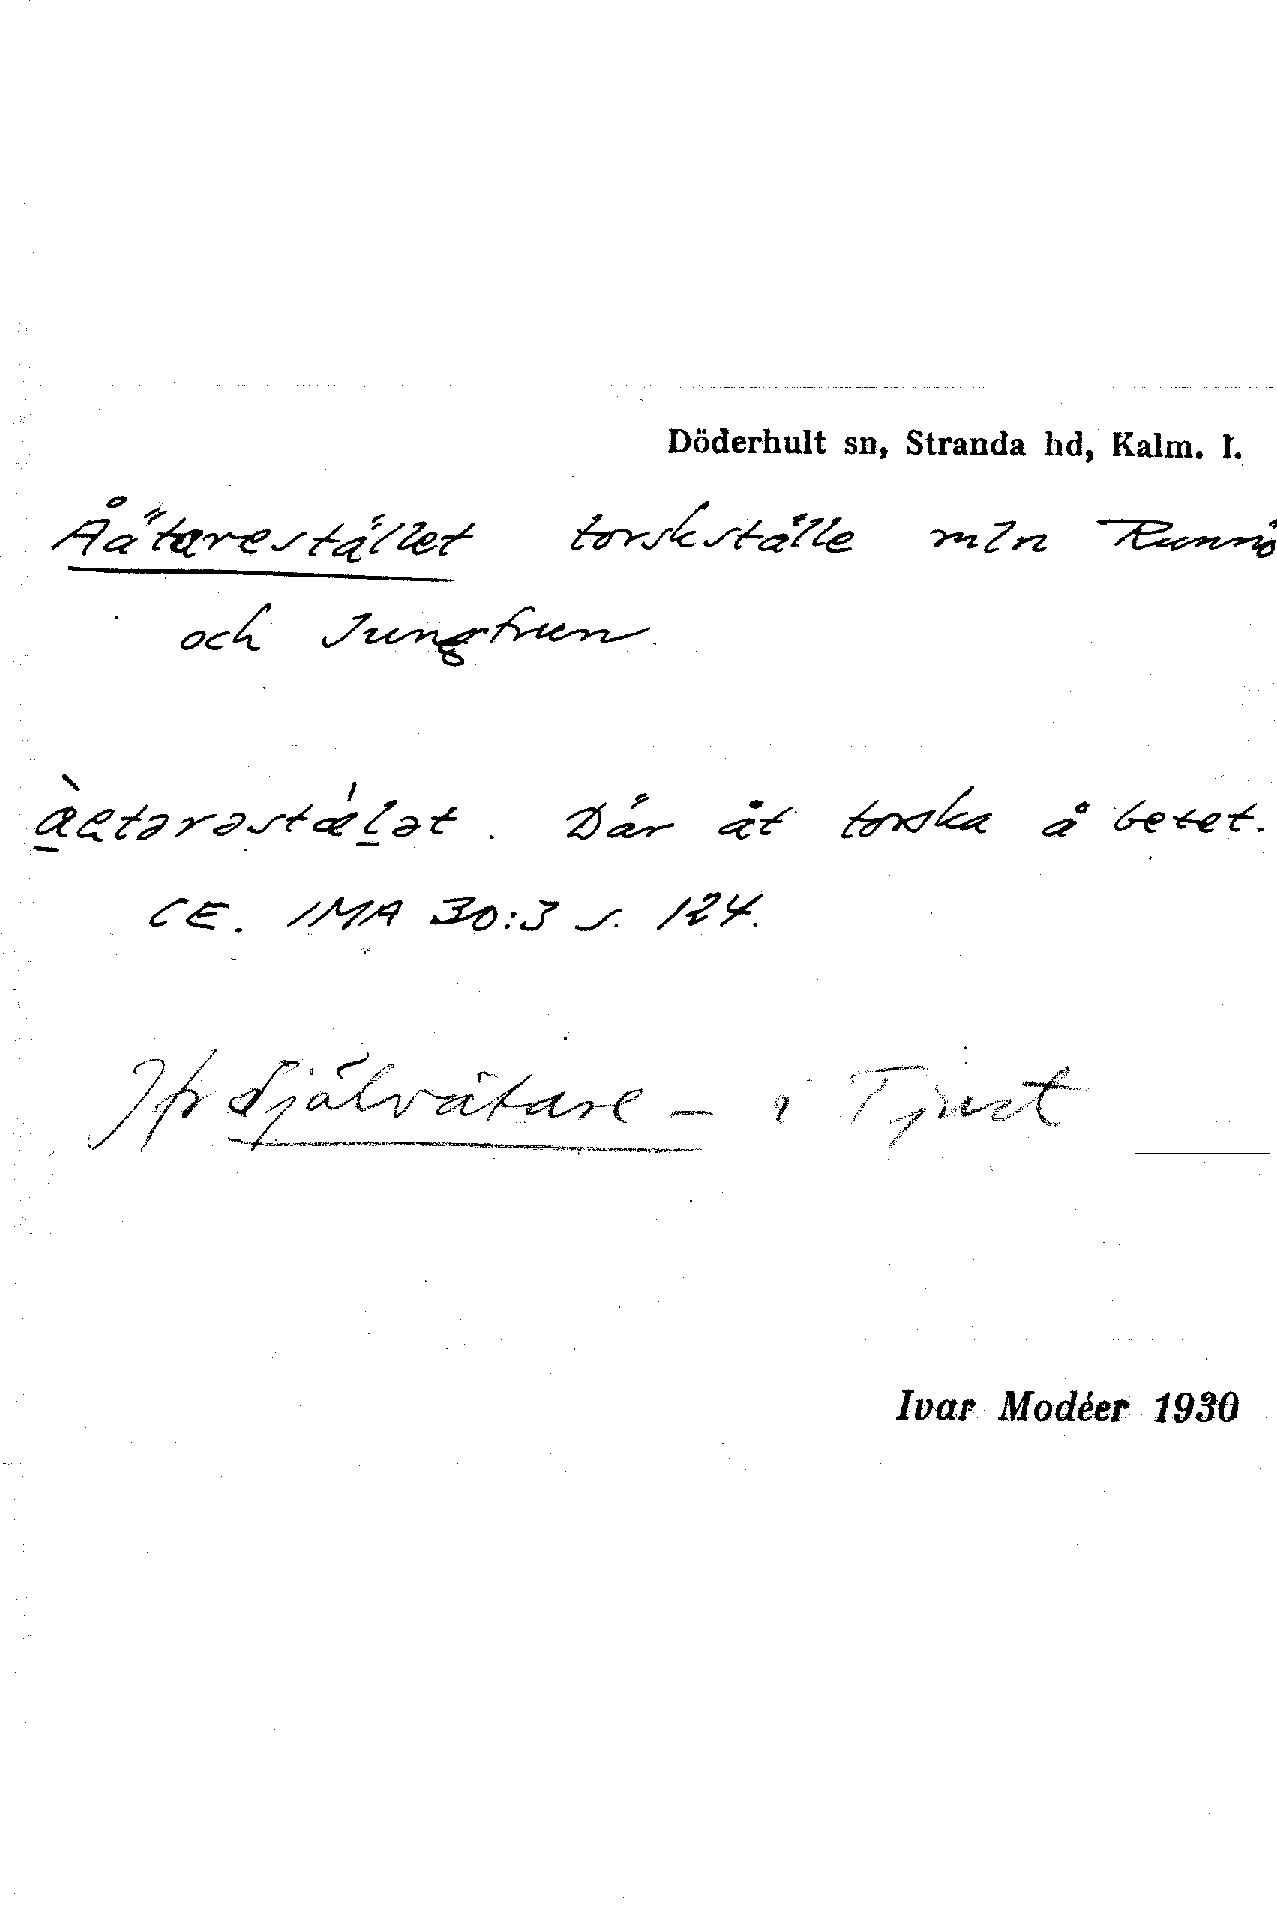 Döderhult sn, Stranda hd, Kalm. l.
Åätarestället torskställe mln Runnö
och Jungfrun
Där åt torska å betet.
CE. IMA 30:3 s. 124.
Jfr Självätare – i Tjust
Ivar Modéer 1930